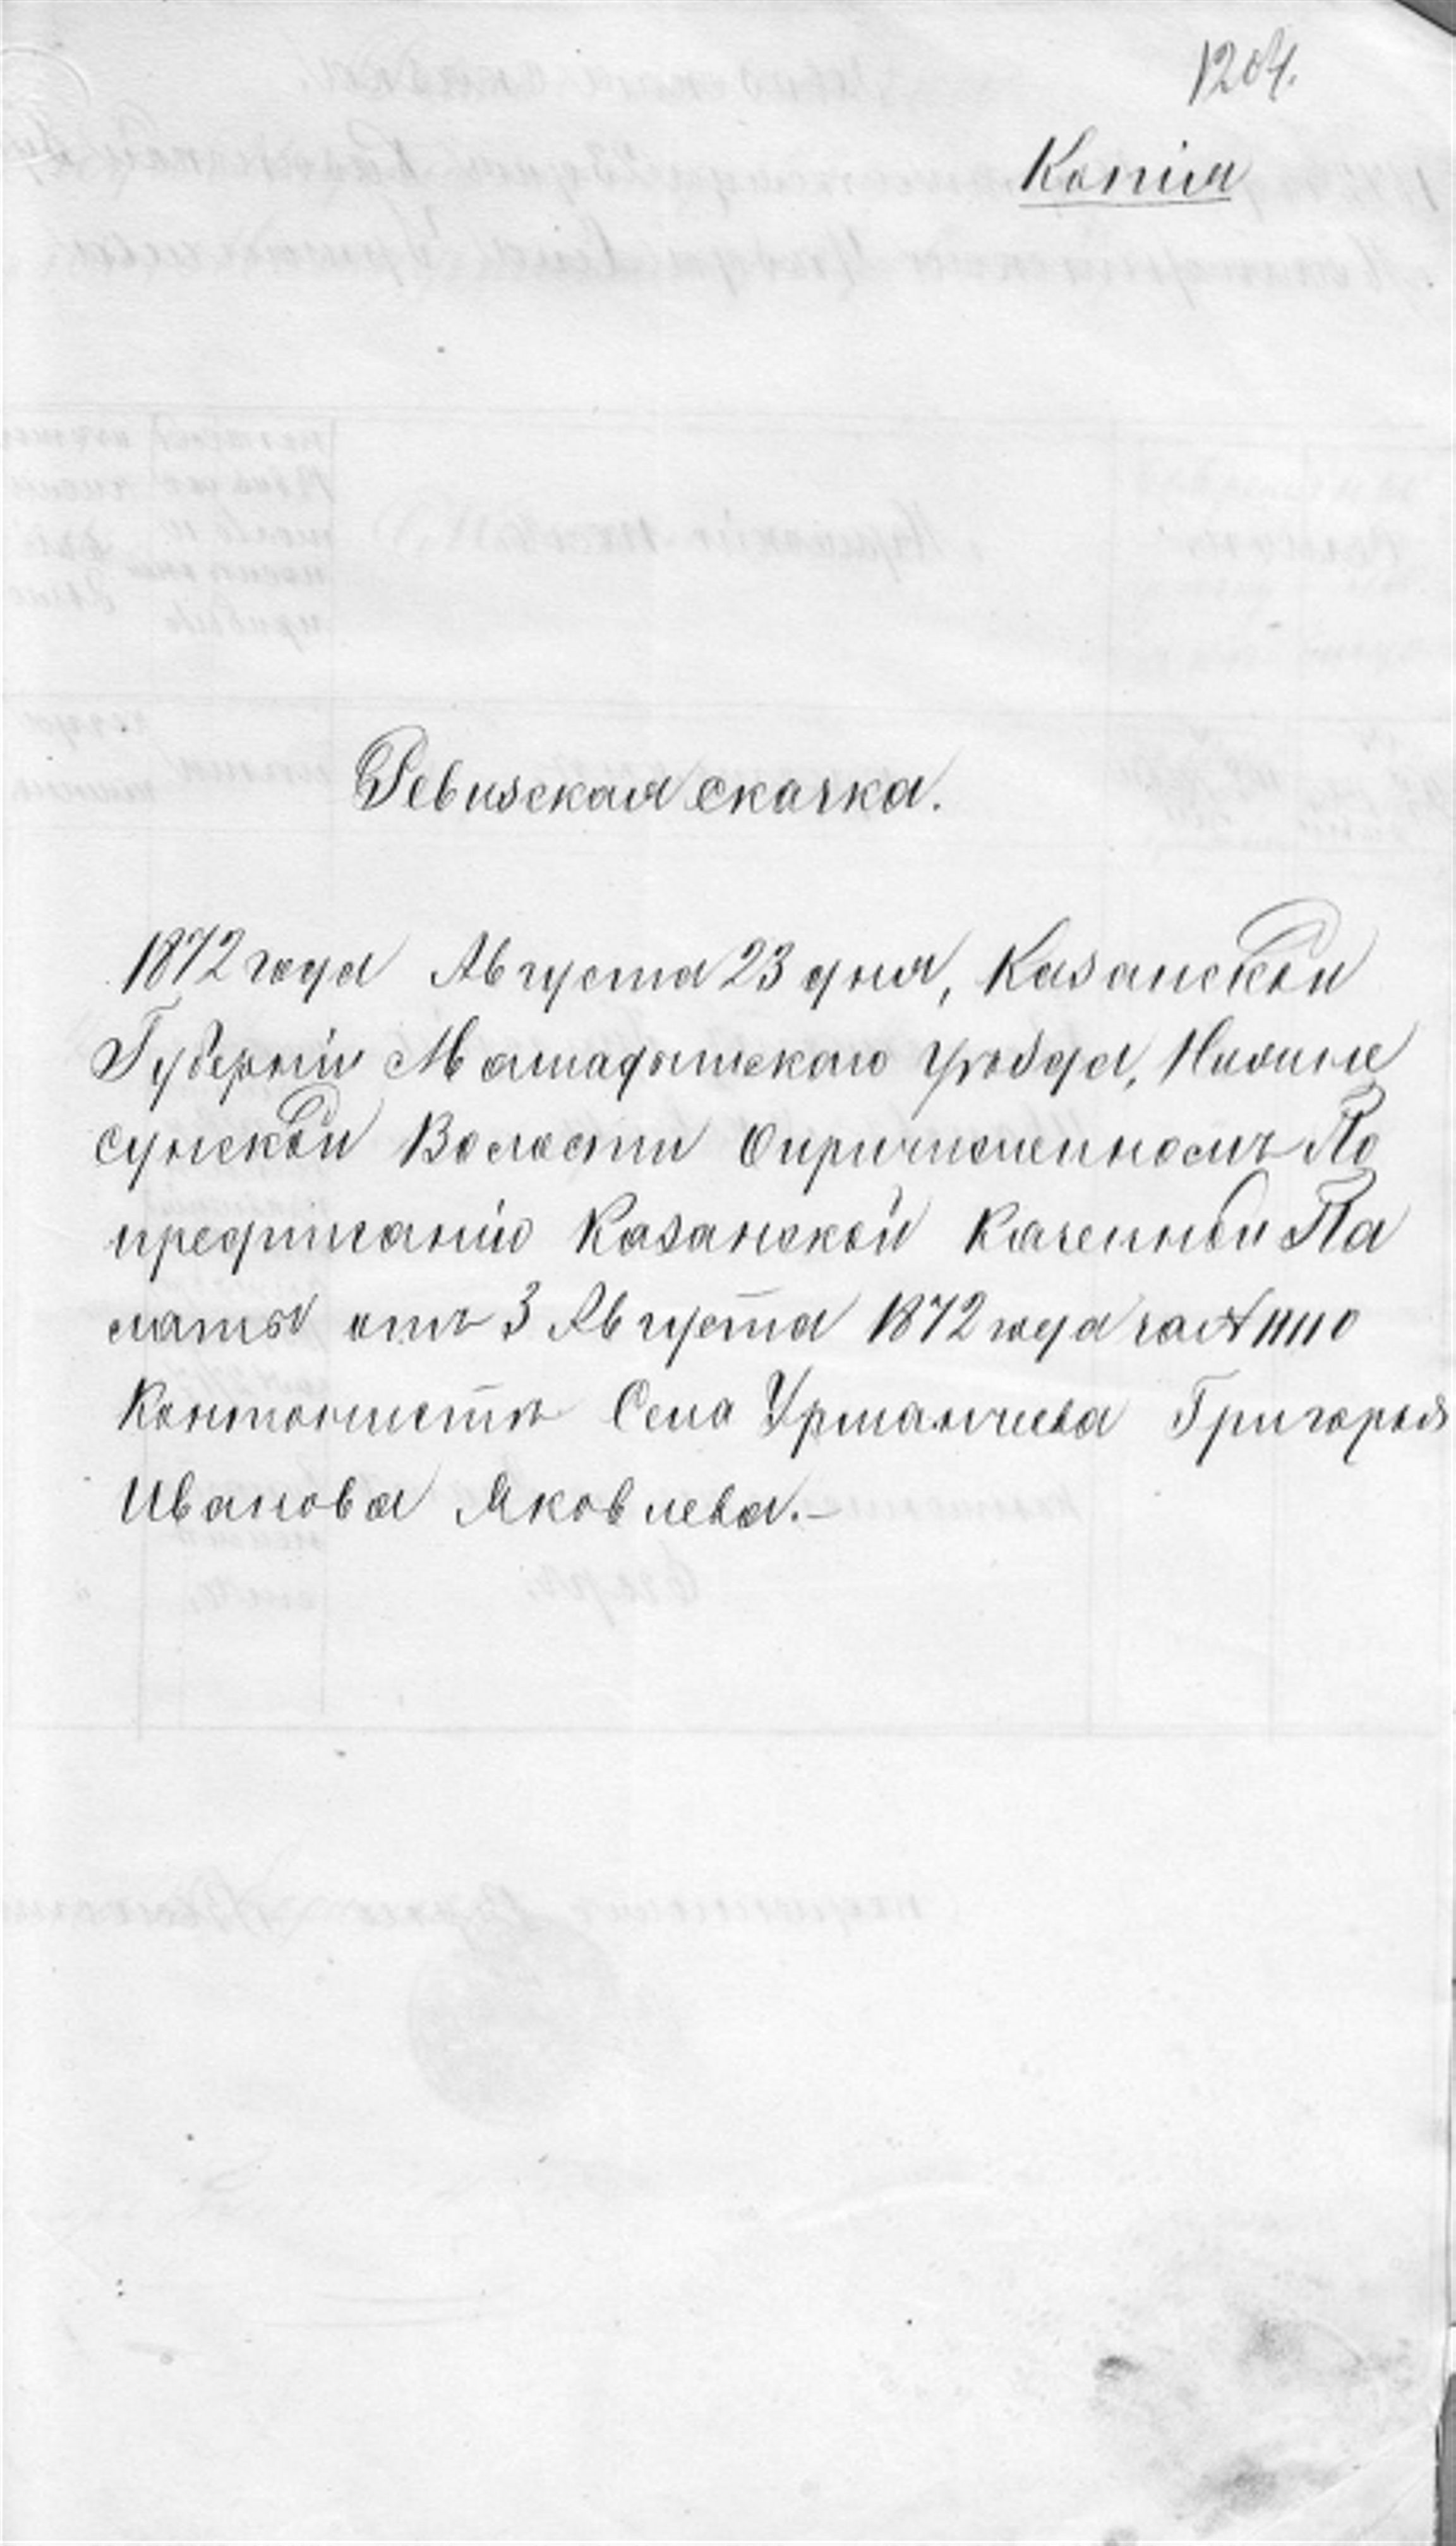 1204.
Копія
Ревизская скаска.
1872 года Августа 23 дня, Казанской
Губерніи Мамадышскаго уѣзда, Нижне
сунской Волости О причисленномъ По
предписанію Казанской Казенной Па
латы отъ 3 Августа 1872 года за № 11110
Кантонистъ Села Урманчеева Григорья
Иванова Яковлева.–